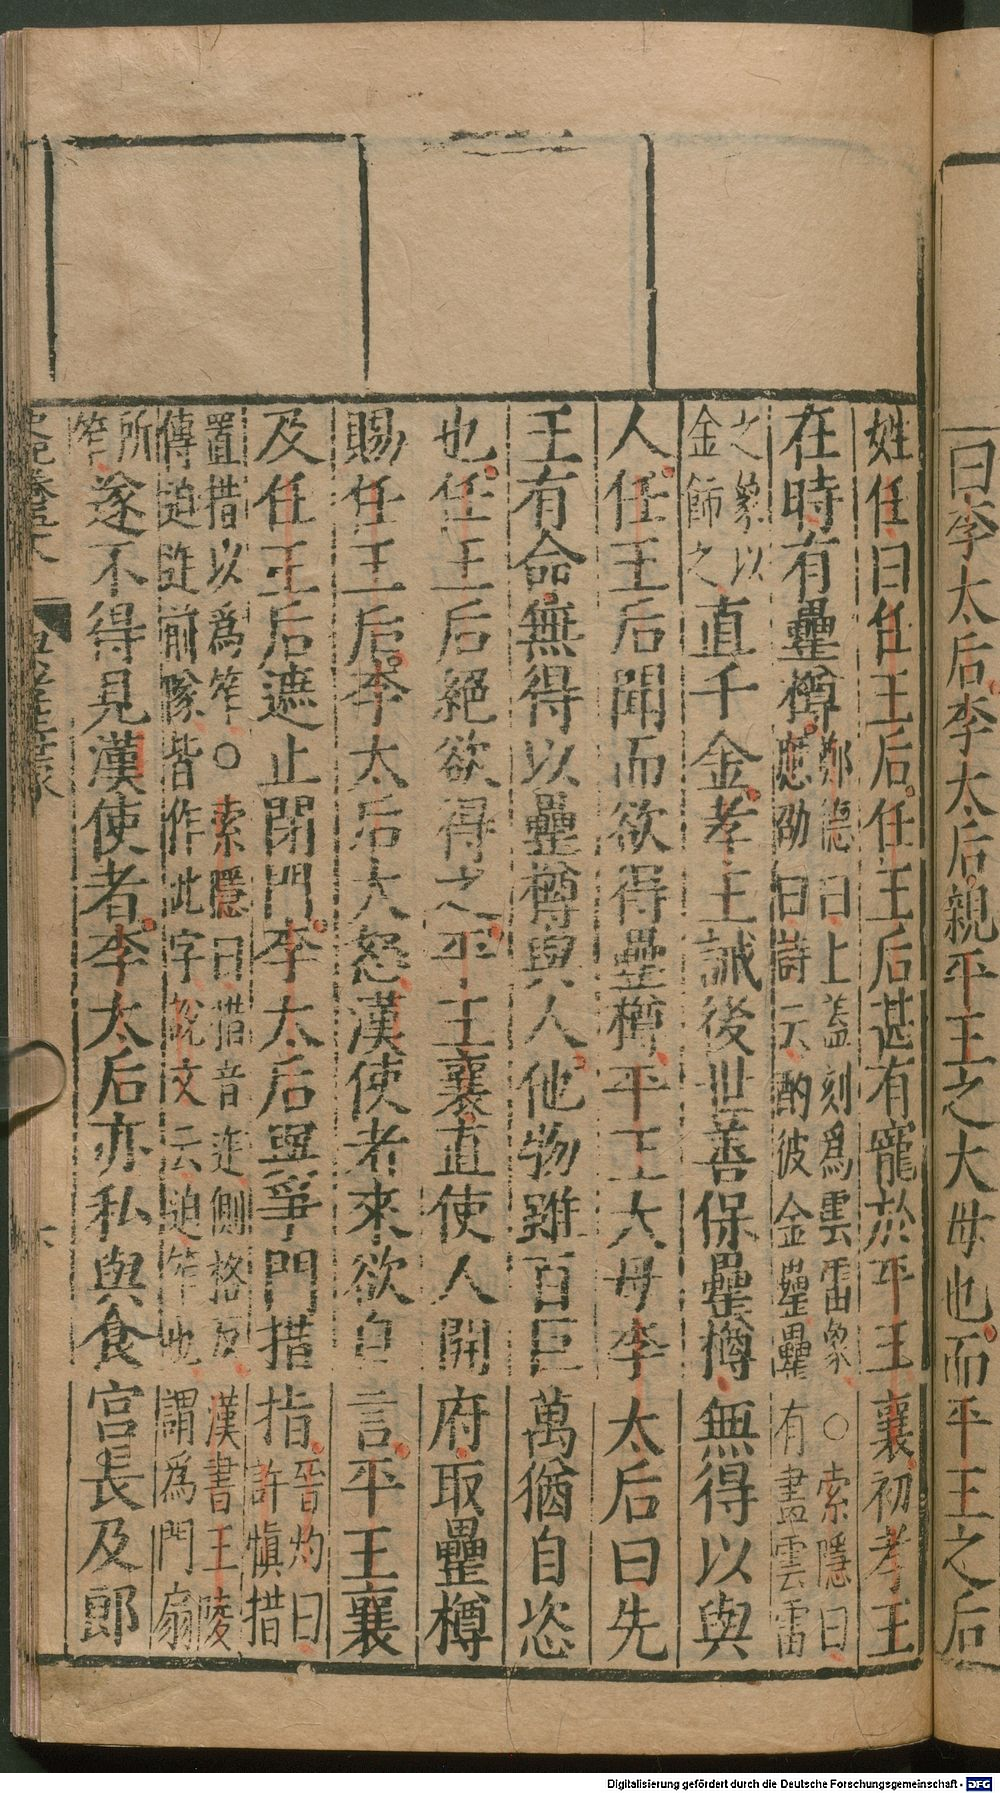 曰李太后李太后親平王之大母也而平王之后
姓任曰任王后任王后甚有寵於平王襄初孝王
在時有罍樽鄭德曰上蓋刻爲雲雷象○索隱曰
應劭曰詩云酌彼金罍罍有畫雲雷
之象以
金飾之直千金孝王誡後世善保罍樽無得以與
人任王后聞而欲得罍樽平王大母李太后曰先
王有命無得以罍樽與人他物雖百巨萬猶自恣
也任王后絕欲得之平王襄直使人開府取罍樽
賜任王后李太后大怒漢使者來欲自言平王襄
及任王后遮止閉門李太后與爭門措指晉灼曰
許愼措
置措以爲笮○索隱曰措音迮側格反漢書王陵
傳迫迮前隊皆作此字說文云迫笮也謂爲門扇
所
笮遂不得見漢使者李太后亦私與食宮長及郎
史記卷五十八
Digitalisierung gefördert durch die Deutsche Forschungsgemeinschaft - DFG